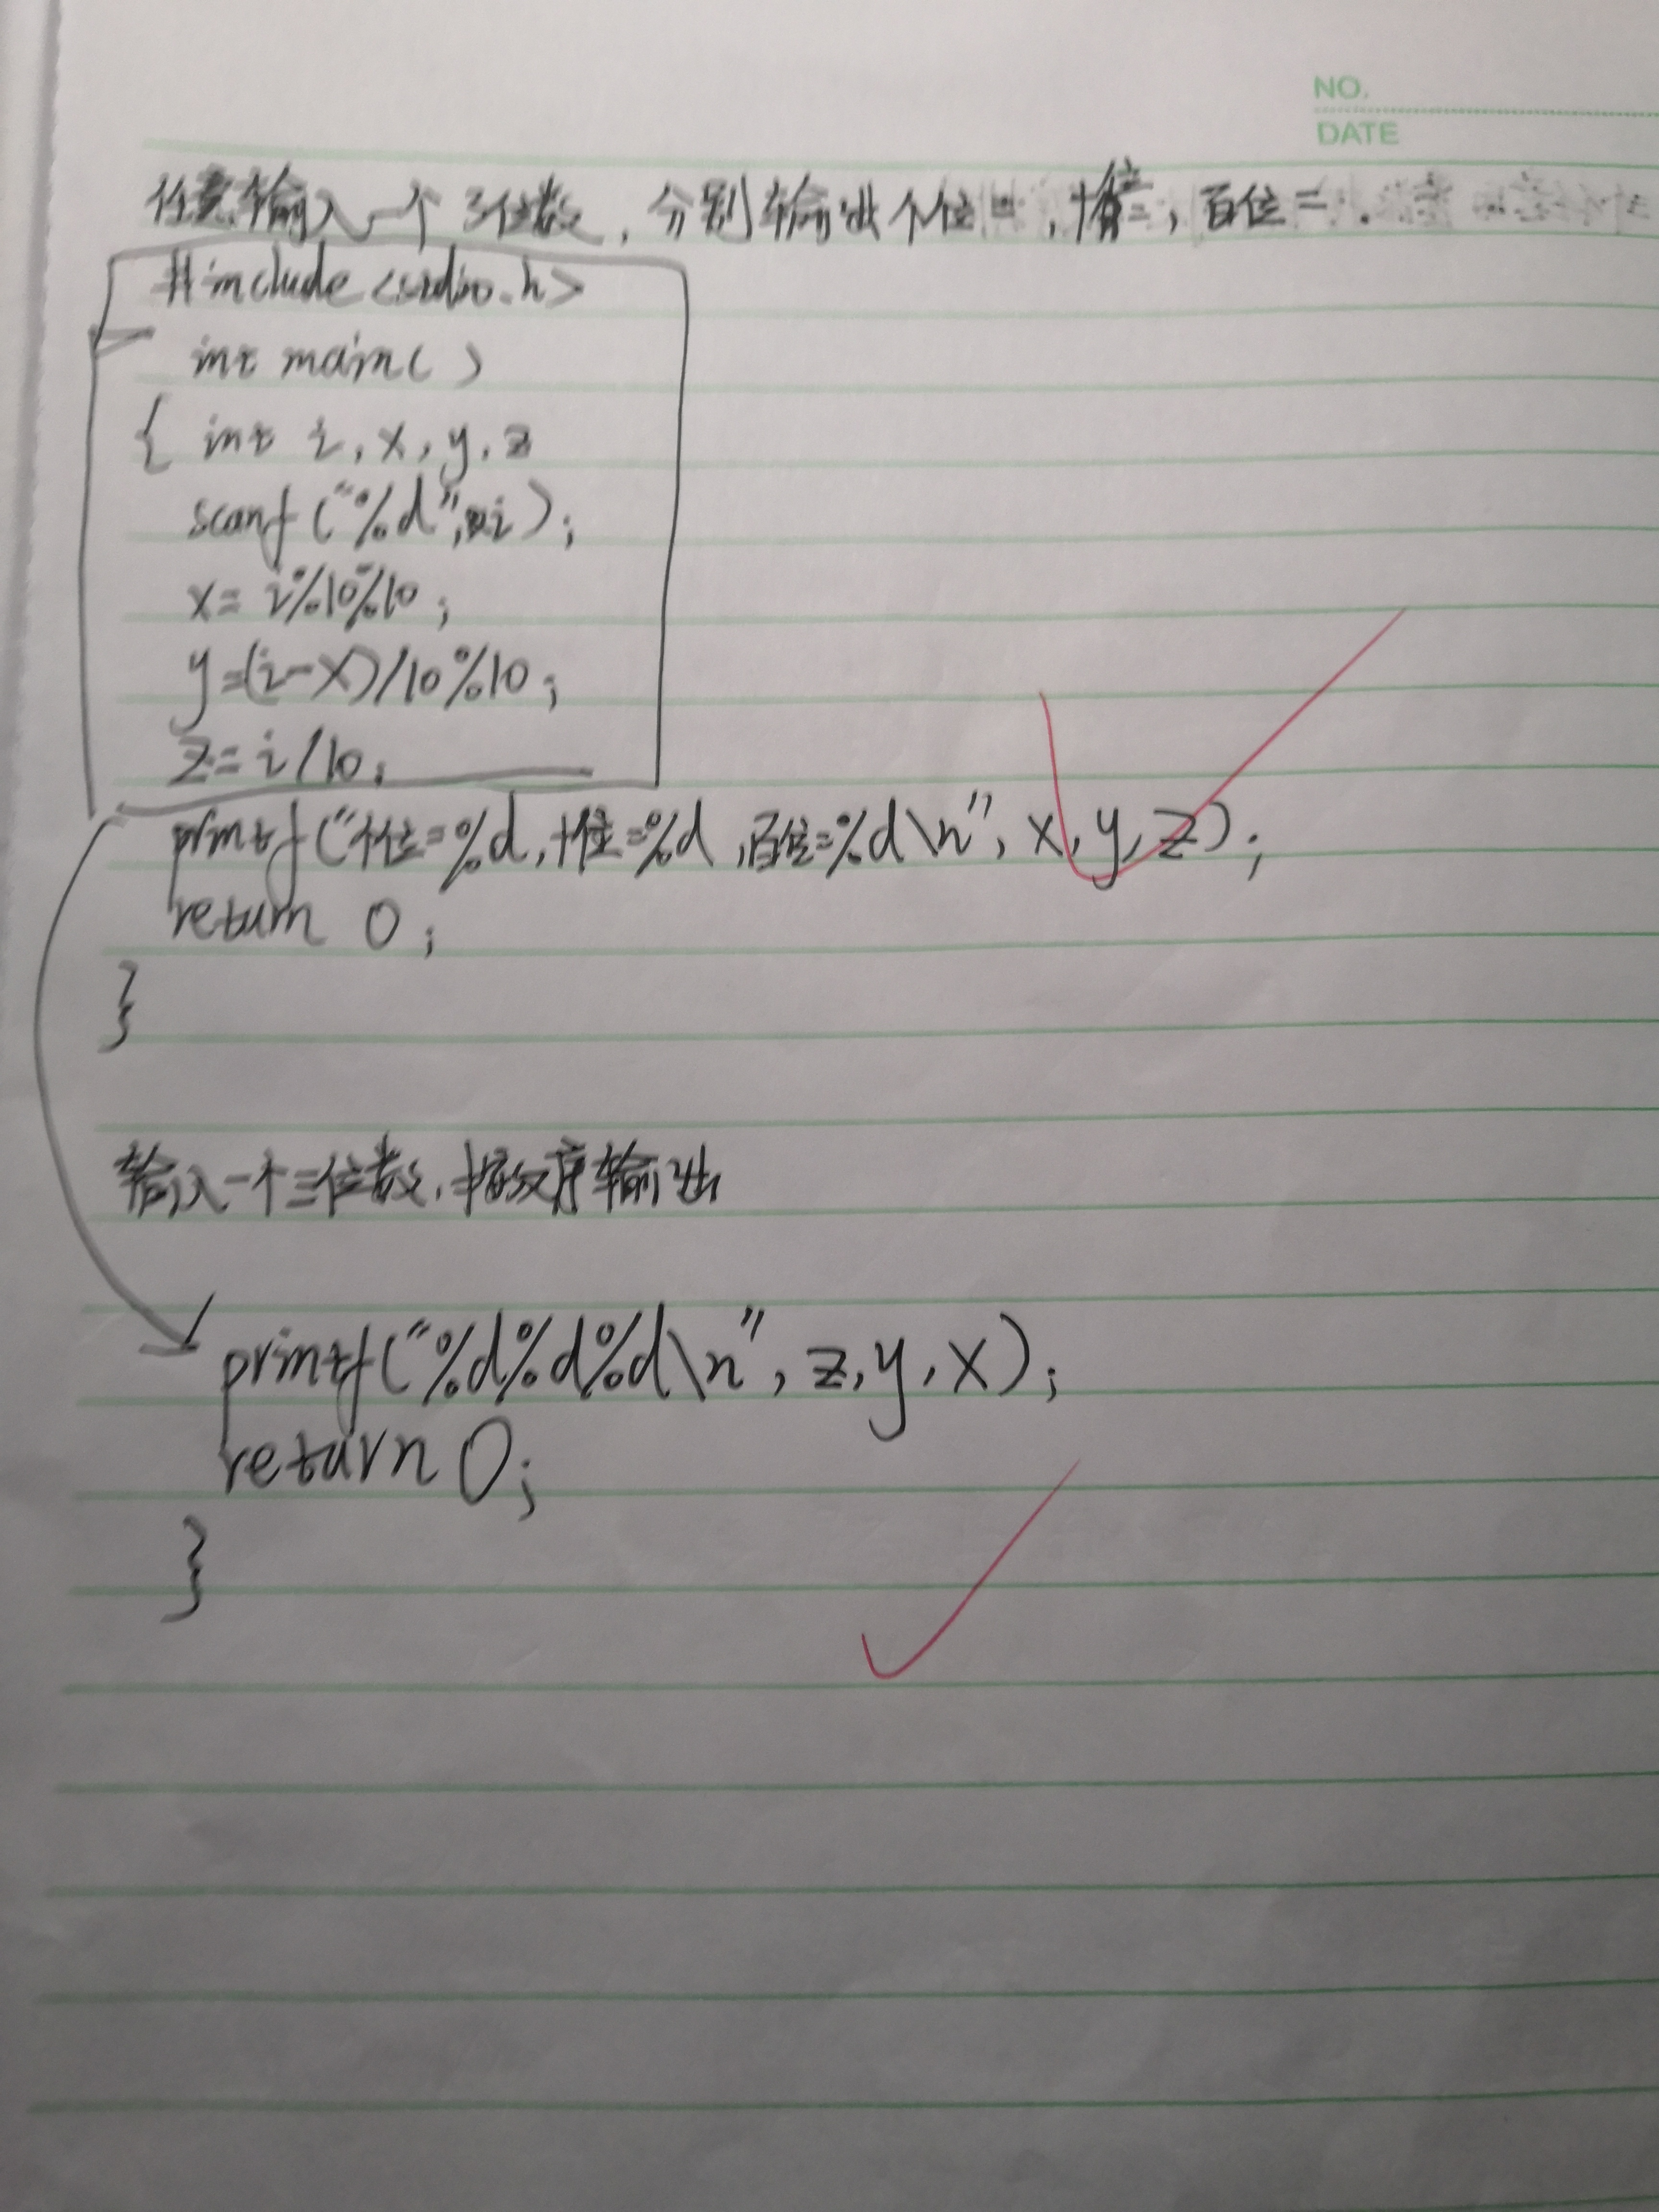 NO.
DATE
任意输入一个3位数,分别输出个位=,十位=,百位=.
#include <stdio.h>
int main( )
{ int i, x, y, z
scanf("%d",&i);
x= i%10%10;
y=(i-x)/10%10;
z=i/10;
printf("个位=%d,十位=%d,百位=%d\n", x, y, z);
return 0;
}
输入一个三位数,按反序输出
printf("%d%d%d\n", z, y, x);
return 0;
}